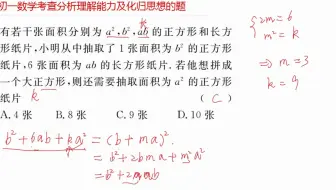 初一数学考查分析理解能力及化归思想的题
有若干张面积分别为 a²,b²,ab 的正方形和长方
形纸片,小明从中抽取了 1 张面积为 b² 的正方形
纸片,6 张面积为 ab 的长方形纸片. 若他想拼成
一个大正方形,则还需要抽取面积为 a² 的正方形
纸片 k ( C )
A. 4 张 B. 8 张 C. 9 张 D. 10 张
b²+6ab+ka² = (b+ma)²
= b²+2bma+m²a²
= b²+2mab
{2m=6
m²=k
⇒ m=3
k=9